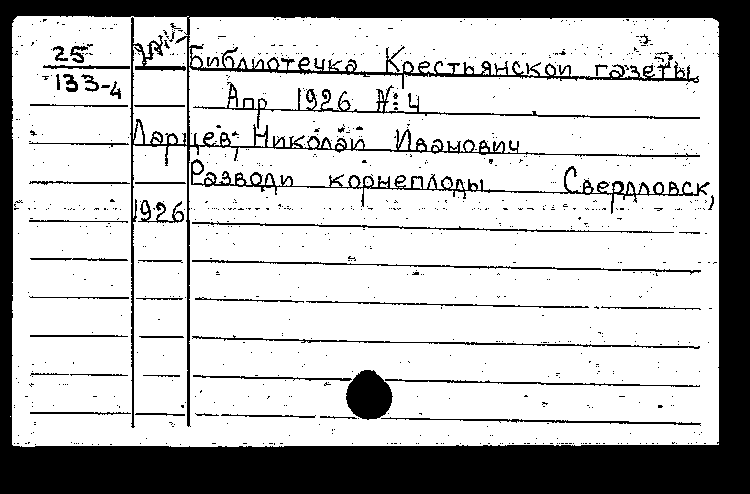 25 Библиотечка Крестьянской газеты
133-4 Апр 1926. №4
Ларцев, Николай Иванович
Разводи корнеплоды Свердловск,
1926